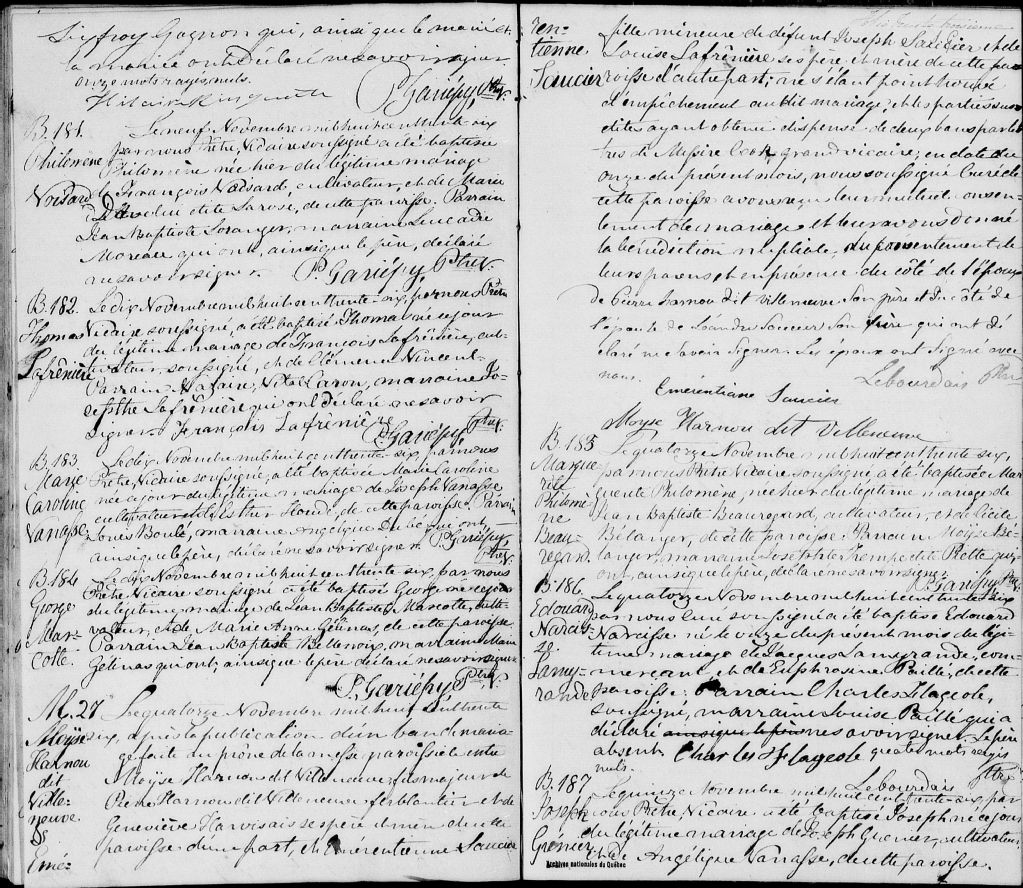 Gagnon qui, ainsi que le marié et
la mariée ont déclaré ne savoir signer
onze mots rayés nuls.
P. Gariépy, Ptre V.
B. 181.
Philomène
Noisard
Le neuf Novembre mil huit cent trente-six
par nous Prêtre Vicaire soussigné a été baptisée
Philomène née hier du légitime mariage
de François cultivateur, et de Marie
dite Larose, de cette paroisse. Parrain
Jean Baptiste Loranger, marraine Leucadie
Moreau qui ont, ainsi que le père, déclaré
ne savoir signer.
P. Gariépy Ptre V.
B. 182.
Thomas
Lafrénière
Le dix Novembre mil huit cent trente-six, par nous Prêtre
Vicaire soussigné, a été baptisé Thomas né ce jour
du légitime mariage de François Lafrénière, cul-
tivateur, soussigné, et de Clémence Vincent.
Parrain Vital Caron, marraine Jo-
sephte Lafrénière qui ont déclaré ne savoir
signer. François Lafrénière
P. Gariépy, Ptre V.
B. 183.
Marie
Caroline
Vanasse
Le dix Novembre mil huit cent trente-six, par nous
Prêtre, Vicaire soussigné, a été baptisée Marie Caroline
née ce jour du légitime mariage de Joseph Vanasse
cultivateur et de Esther de cette paroisse. Parrain
Louis Boulé, marraine Angélique qui ont,
ainsi que le père, déclaré ne savoir signer. P. Gariépy
Ptre V.
B. 184
George
Mar-
cotte.
Le dix Novembre mil huit cent trente six, par nous
Prêtre Vicaire soussigné a été baptisé George né ce jour
du légitime mariage de Jean Baptiste Marcotte, culti-
vateur, et de Marie Anne Gélinas, de cette paroisse.
Parrain Jean Baptiste marraine Marie
Gélinas qui ont, ainsi que le père déclaré ne savoir signer.
P. Gariépy Ptre V.
M. 27
Moÿse
Harnou
dit
Ville-
neuve.
&
Emé-
Le quatorze Novembre mil huit cent trente
six, après la publication d'un ban de maria-
ge faite au prône de la messe paroissiale entre
Moÿse Harnou dit Villeneuve, fils majeur de
Pierre Harnou dit Villeneuve ferblantier et de
Geneviève Harvisais ses père et mère de cette
paroisse d'une part, et Emérentienne Saucier
ren-
tienne
Saucier
fille mineure de défunt Joseph Saucier et de
Louise Lafrénière ses père et mère de cette pa-
roisse d'autre part; ne s'étant point trouvé
d'empêchement au dit mariage, et les parties sus-
dites ayant obtenu dispense de deux bans par let-
tres de Messire Cook grand vicaire, en date du
onze du présent mois, nous soussigné Curé de
cette paroisse avons reçu leur mutuel consen-
tement de mariage et leur avons donné
la bénédiction nuptiale, du consentement de
leurs parens et en présence du côté de l'époux
de Pierre Harnou dit Villeneuve son père et du côté de
l'épouse de Léandre Saucier son frère qui ont dé-
claré ne savoir signer. Les époux ont signé avec
nous.
Lebourdais Ptre
Emérentiane Saucier
Moyse Harnou dit Villeneuve
B. 185
Margue
rite
Philomè-
ne
Beau-
regard.
Le quatorze Novembre mil huit cent trente six,
par nous Prêtre Vicaire soussigné, a été baptisée Mar-
guerite Philomène, née hier du légitime mariage de
Jean Baptiste Beauregard, cultivateur, et de Cécile
Bélanger, de cette paroisse. Parrain Moÿse Bé-
langer, marraine Josephte qui
ont, ainsi que le père, déclaré ne savoir signer.
P. Gariépy Ptre
B. 186.
Edouard
Narcis-
se
Lamy-
rande
Le quatorze Novembre mil huit cent trente six
par nous Curé soussigné a été baptisé Edouard
Narcisse né le onze du présent mois du légi-
time mariage de Jacques com-
merçant, et de Euphrosine Paillé, de cette
paroisse. Parrain Charles Flageole,
soussigné, marraine Louise Paillé qui a
déclaré ainsi que le père ne savoir signer. Le père
absent. Charles F Flageole quatre mots rayés
nuls.
Lebourdais Ptre
B. 187
Joseph
Grénier
Le quinze Novembre mil huit cent trente-six par
nous Prêtre, Vicaire a été baptisé Joseph né ce jour
du légitime mariage de Joseph Grenier, cultivateur
et de Angélique Vanasse, de cette paroisse.
Archives nationales du Québec